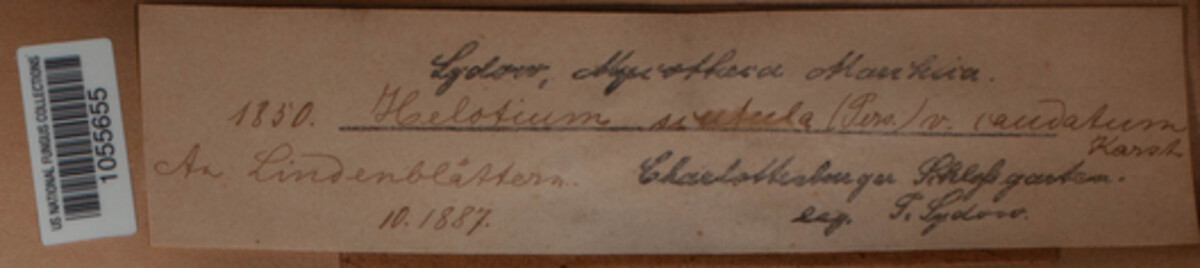 US NATIONAL FUNGUS COLLECTIONS
1055655
Sydow, Mycotheca Marchica.
1850. Helotium scutula (Pers.) v. caudatum
Karst
An Lindenblättern. Charlottenburger Schloßgarten.
10.1887. leg. P. Sydow.